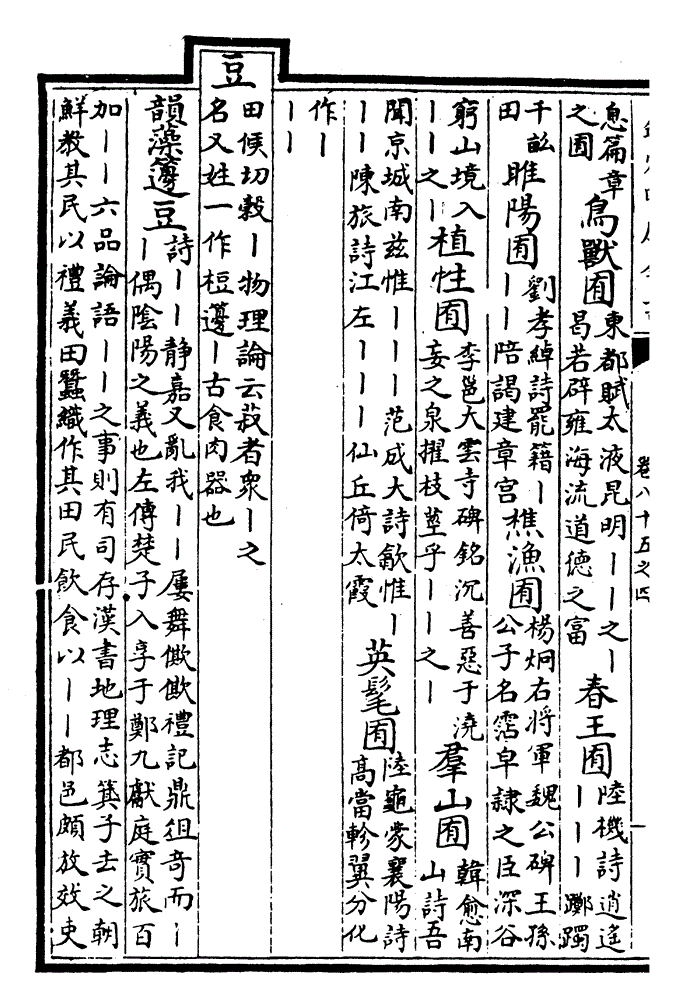 卷八十五之四
息篇章
之囿
鳥獸囿
東都賦太液昆明丨丨之丨
曷若辟雍海流道德之富
春王囿
陸機詩逍遙
丨丨丨躑躅
千畝
田
睢陽囿
劉孝綽詩罷籍丨
丨丨陪謁建章宮
樵漁囿
楊炯右將軍魏公碑王孫
公子名霑皁隸之臣深谷
窮山境入
丨丨之丨
植性囿
李邕大雲寺碑銘沉善惡于澆
妄之泉擢枝莖乎丨丨之丨
羣山囿
韓愈南
山詩吾
聞京城南兹惟丨丨丨范成大詩歙惟丨
丨丨陳旅詩江左丨丨丨仙丘倚太霞
英髦囿
陸龜蒙襄陽詩
高當軫翼分化
作丨
丨丨
豆
田候切穀丨物理論云菽者衆丨之
名又姓一作梪籩丨古食肉器也
韻藻籩豆
詩丨丨靜嘉又亂我丨丨屢舞僛僛禮記鼎俎竒而丨
丨偶陰陽之義也左傳楚子入享于鄭九獻庭實旅百
加丨丨六品論語丨丨之事則有司存漢書地理志箕子去之朝
鮮教其民以禮義田蠶織作其田民飲食以丨丨都邑頗放效吏